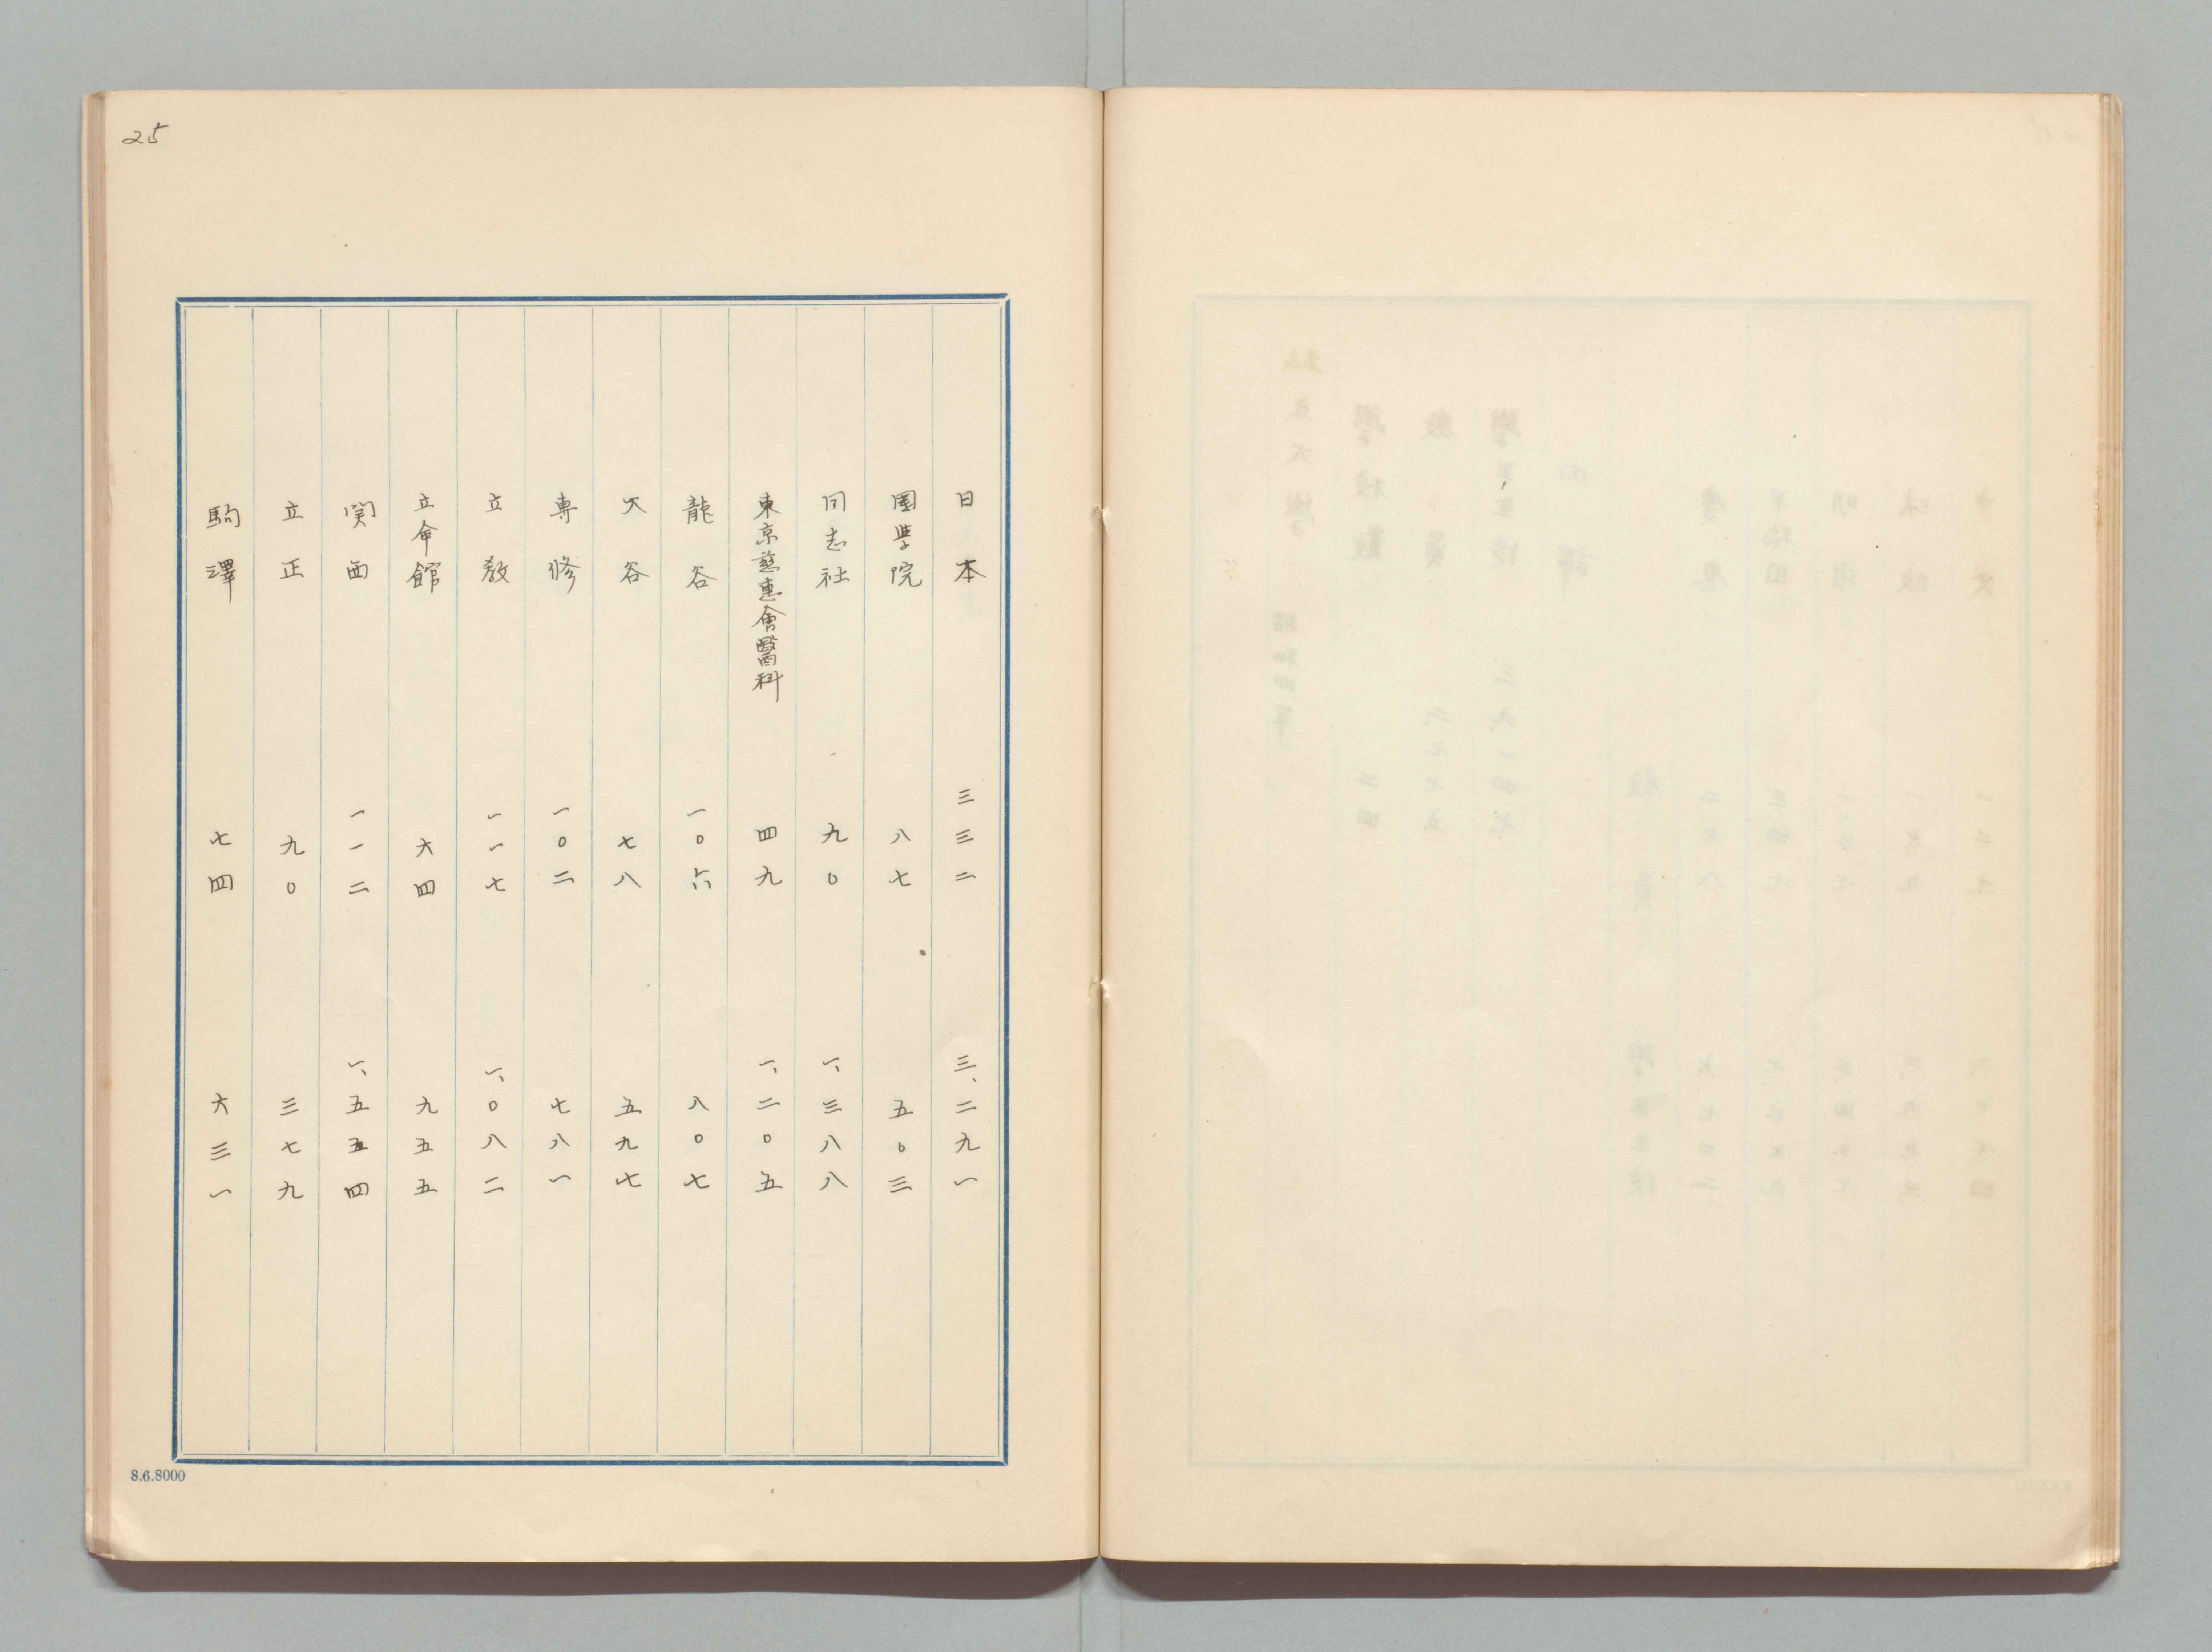 25
日本 三三二 三、二九一
國学院 八七 五〇三
同志社 九〇 一、三八八
東京慈恵會醫科 四九 一、二〇五
龍谷 一〇六 八〇七
大谷 七八 五九七
専修 一〇二 七八一
立教 一一七 一、〇八二
立命館 六四 九五五
関西 一一二 一、五五四
立正 九〇 三七九
駒澤 七四 六三一
8.6.8000